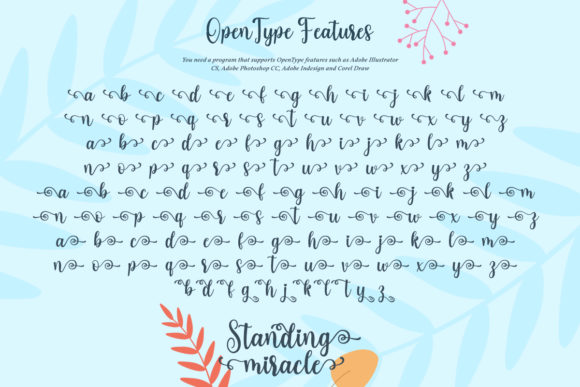 OpenType Features
You need a program that supports OpenType features such as Adobe Illustrator
CS, Adobe Photoshop CC, Adobe Indesign and Corel Draw
a b c d e f g h i j k l m
n o p q r s t u v w x y z
a b c d e f g h i j k l m
n o p q r s t u v w x y z
a b c d e f g h i j k l m
n o p q r s t u v w x y z
a b c d e f g h i j k l m
n o p q r s t u v w x y z
b d f g h j k l t y z
Standing
miracle